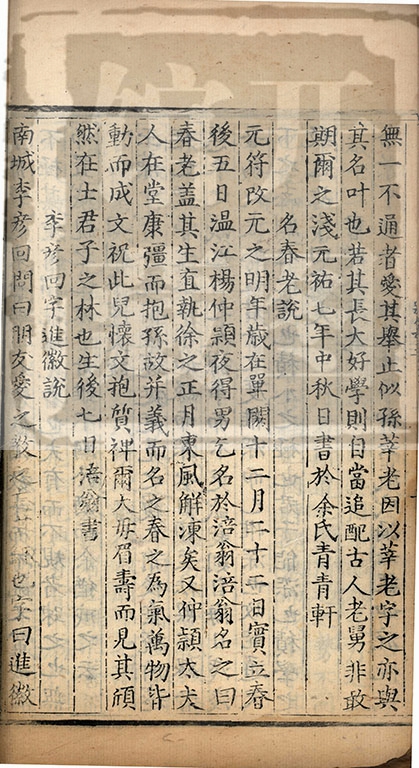 無一不通者愛其舉止似孫莘老因以莘老字之亦與
其名叶也若其長大好學則日當追配古人老舅非敢
期爾之淺元祐七年中秋日書於余氏青青軒
名春老說
元符改元之明年歲在單閼十二月二十二日實立春
後五日溫江楊仲頴夜得男乞名於涪翁涪翁名之曰
春老盖其生直執徐之正月東風解凍矣又仲頴太夫
人在堂康彊而抱孫故并義而名之春之為氣萬物皆
動而成文祝此兒懷文抱質裨爾大母眉壽而見其頎
然在士君子之林也生後七日涪翁書
李彦回字進徽說
南城李彦回問曰朋友愛之敬之 也字曰進徽